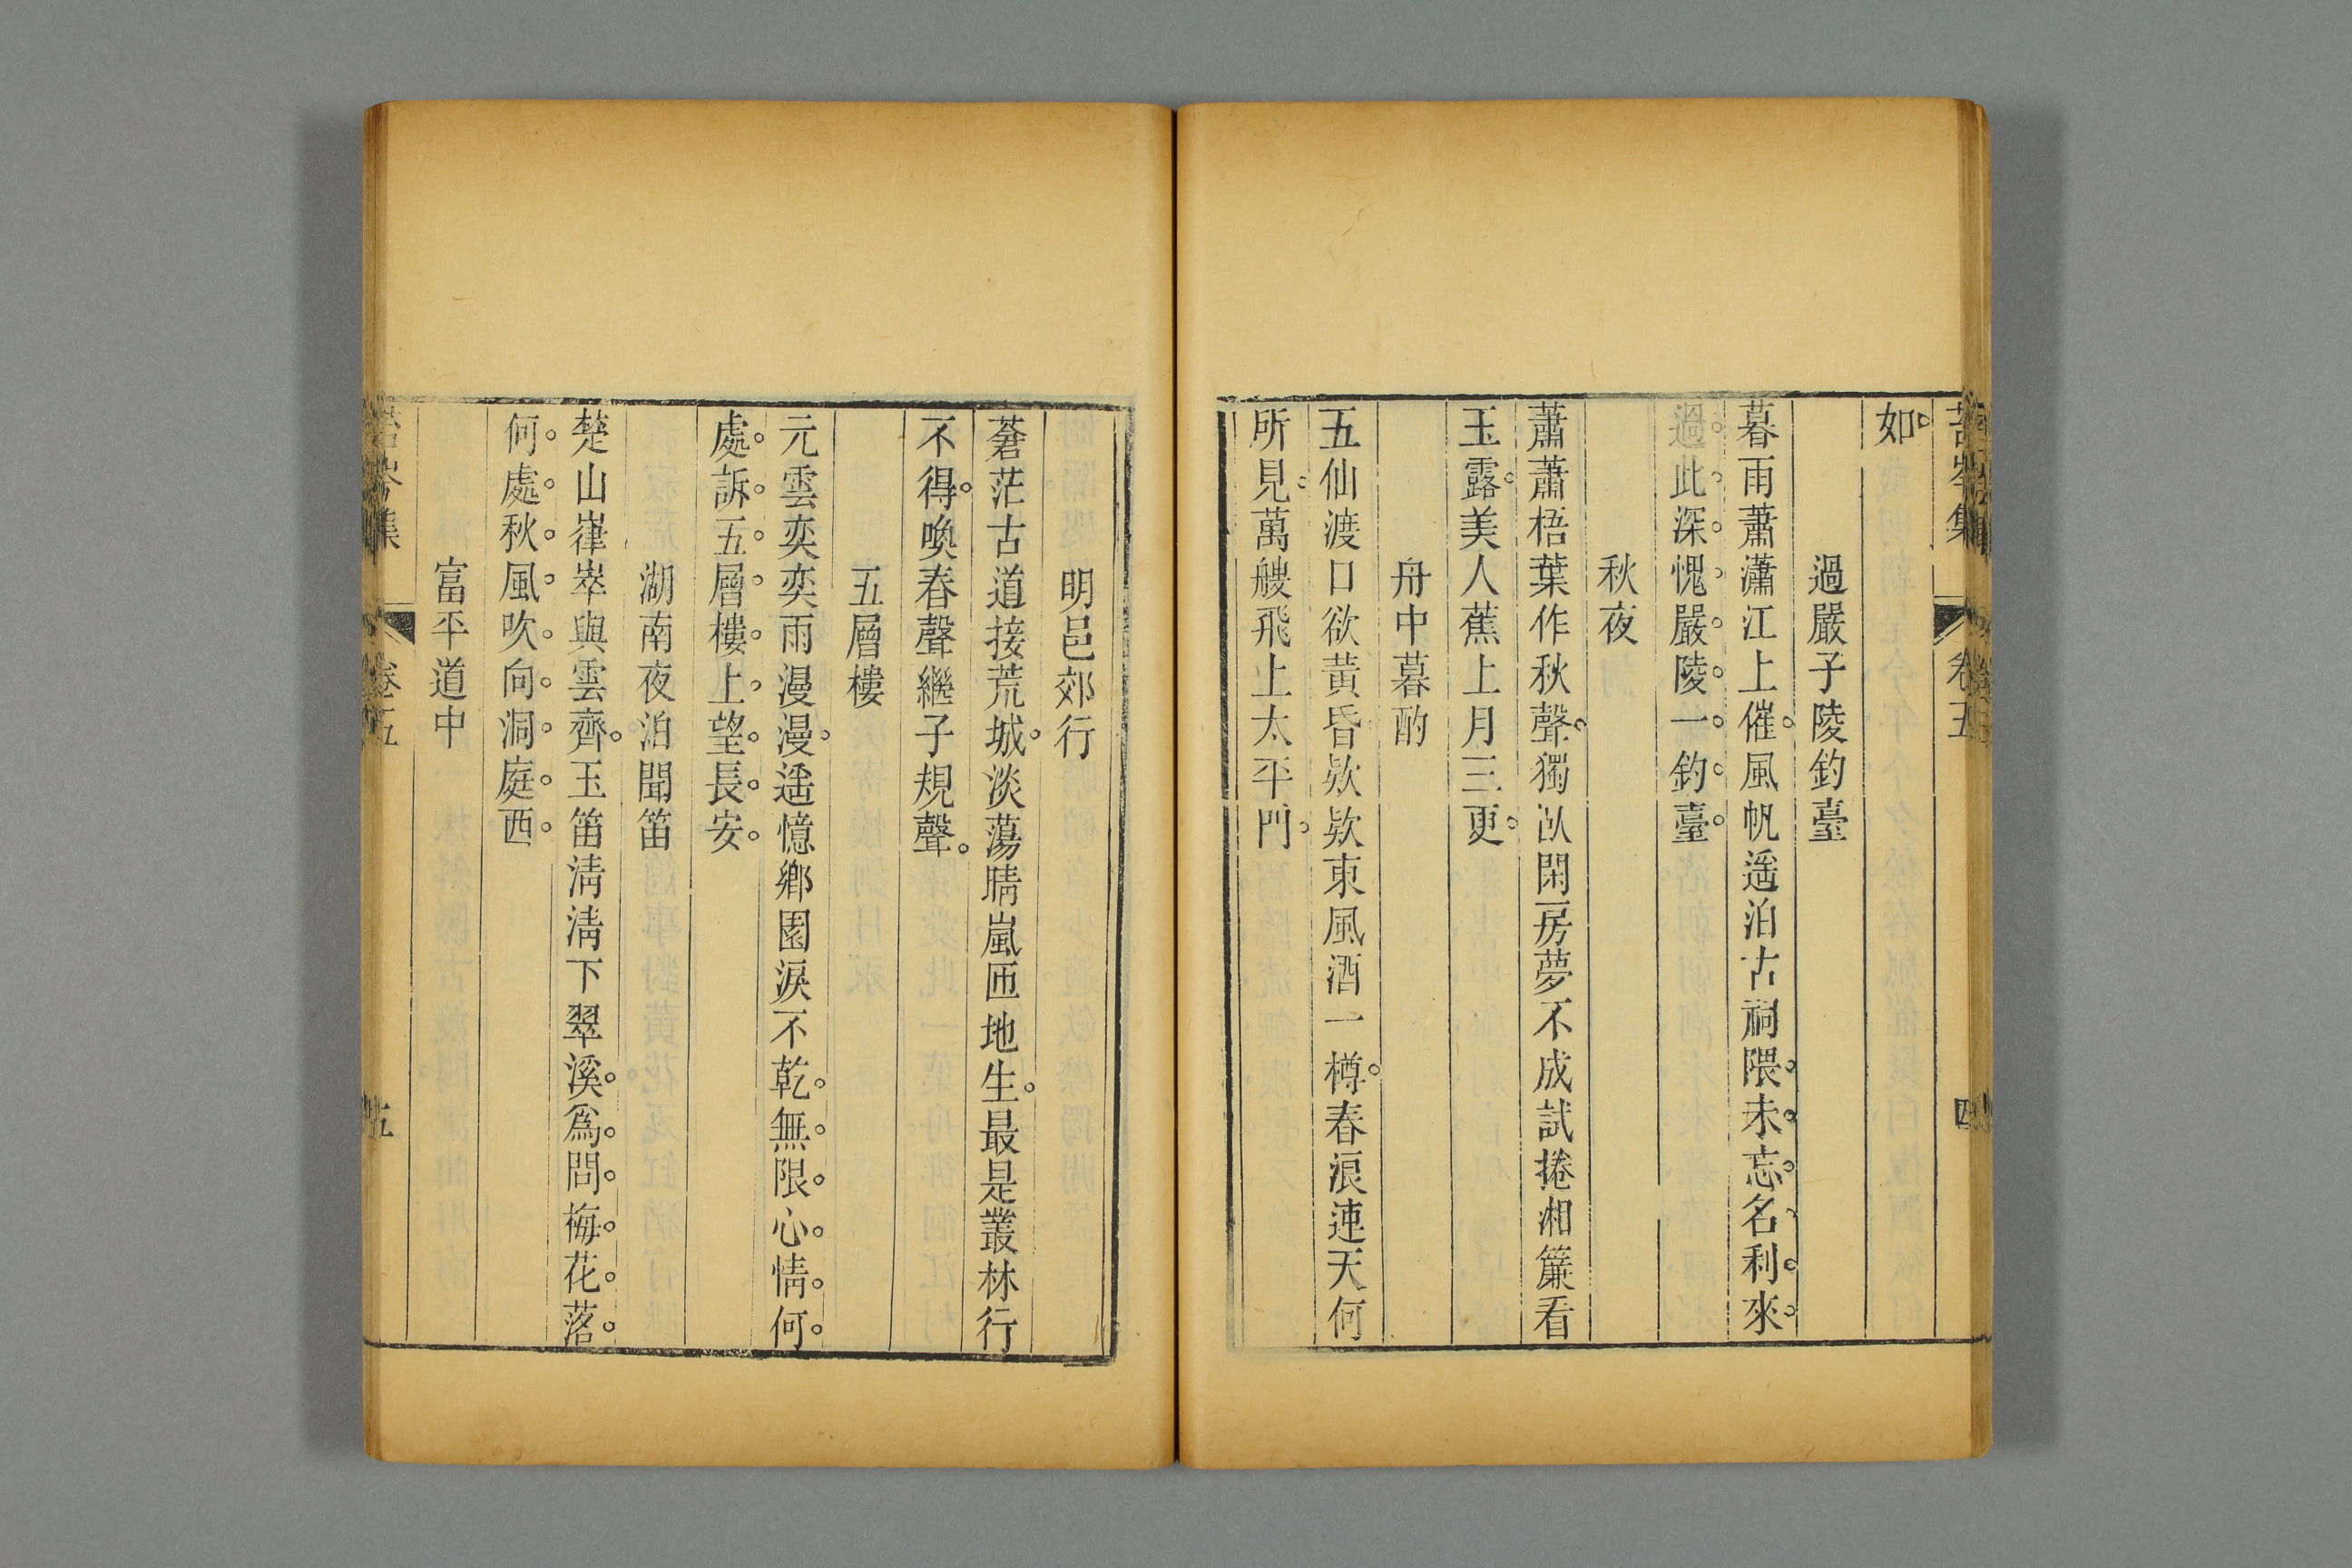 苔岑集 卷五 四
如
過嚴子陵釣臺
暮雨蕭瀟江上催風帆遥泊古祠隈未忘名利來
過此深愧嚴陵一釣臺
秋夜
蕭蕭梧葉作秋聲獨臥閑房夢不成試捲湘簾看
玉露美人蕉上月三更
舟中暮酌
五仙渡口欲黃昏欵欵東風酒一樽春浪連天何
所見萬艘飛上太平門
明邑郊行
蒼茫古道接荒城淡蕩晴嵐匝地生最是叢林行
不得喚春聲繼子規聲
五層樓
元雲奕奕雨漫漫遥憶鄉園淚不乾無限心情何
處訴五層樓上望長安
湖南夜泊聞笛
楚山嵂崒與雲齊玉笛清清下翠溪為問梅花落
何處秋風吹向洞庭西
富平道中
苔岑集 卷五 五